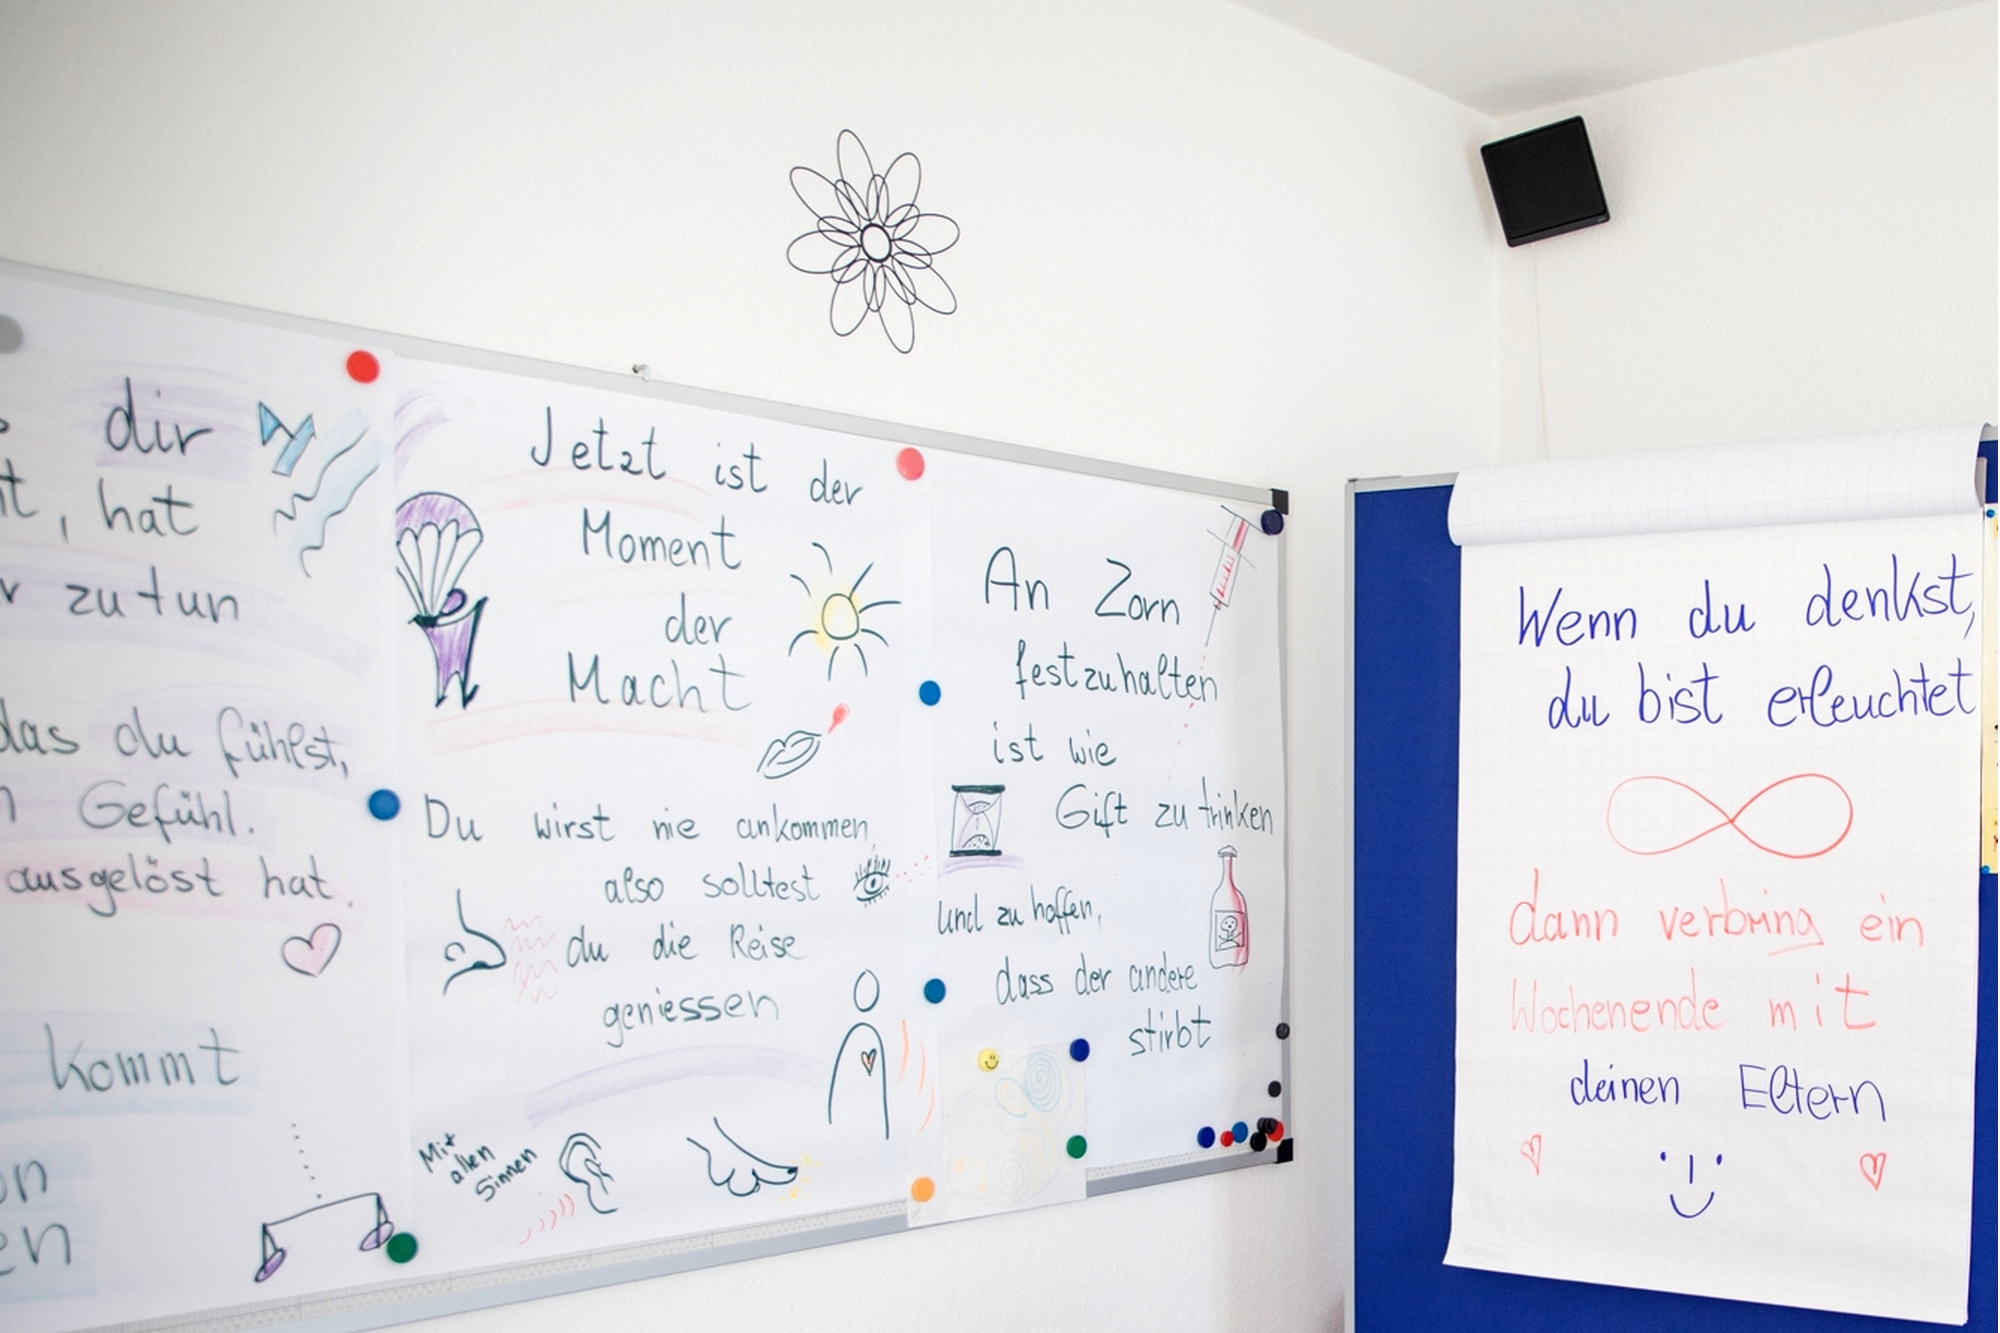 dir
, hat
zu tun
das du fühlst,
Gefühl.
ausgelöst hat.
kommt
Jetzt ist der
Moment
der
Macht
Du wirst nie ankommen,
also solltest
du die Reise
geniessen
Mit
allen
Sinnen
An Zorn
festzuhalten
ist wie
Gift zu trinken
und zu hoffen,
dass der andere
stirbt
Wenn du denkst,
du bist erleuchtet
dann verbring ein
Wochenende mit
deinen Eltern